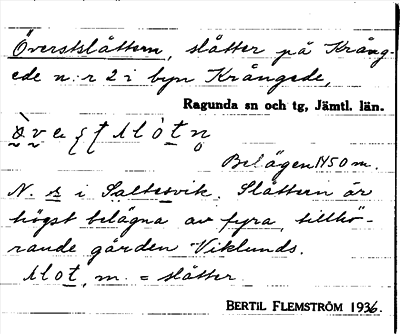 Överstslåtten, slåtter på Krång-
ede n:r 2 i byn Krångede,
Ragunda sn och tg, Jämtl. län.
Belägen 1450 m.
N. s i Saltesvik. Slåtten är
högst belägna av fyra, tillhö-
rande gården Viklunds.
slot, m. = slåtter.
BERTIL FLEMSTRÖM 1936.